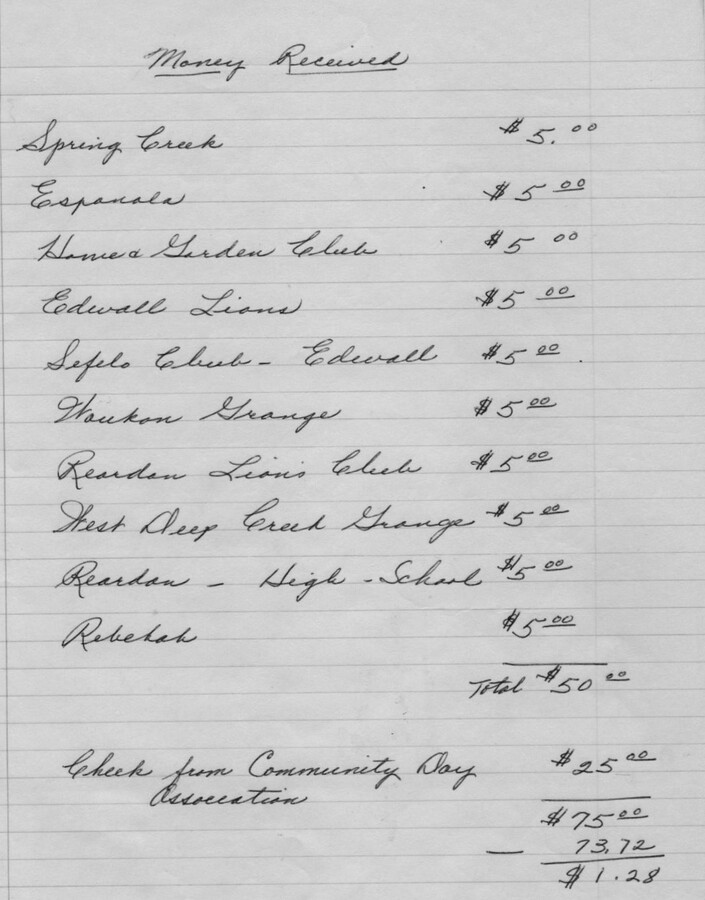 Money Received
Spring Creek $5.00
Espanola $5 00
Home & Garden Club $5 00
Edwall Lions $5 00
Club - Edwall $5 00
Waukon Grange $5 00
Reardan Lions Club $5 00
West Deep Creek Grange $5 00
Reardan - High - School $5 00
Rebekah $5 00
Total $50 00
Check from Community Day $25 00
Association
$75 00
- 73.72
$1.28